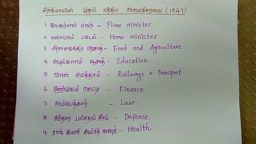 இந்தியாவின் முதல் மத்திய அமைச்சரவை (1947)
1 ஜவஹர்லால் நேரு - Prime minister
2 வல்லபாய் படேல் - Home minister
3 - Food and Agriculture
4 ஆசாத் - Education
5 ஜான் மத்தாய் - Railways & Transport
6 செட்டி - Finance
7 அம்பேத்கர் - Law
8 சர்தார் பல்தேவ் சிங் - Defence
9 ராஜ் குமாரி அம்ரித் கவுர் - Health